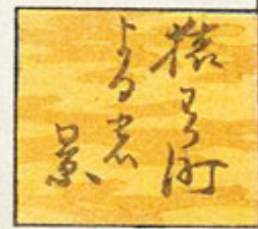 猿わか町
よるの景